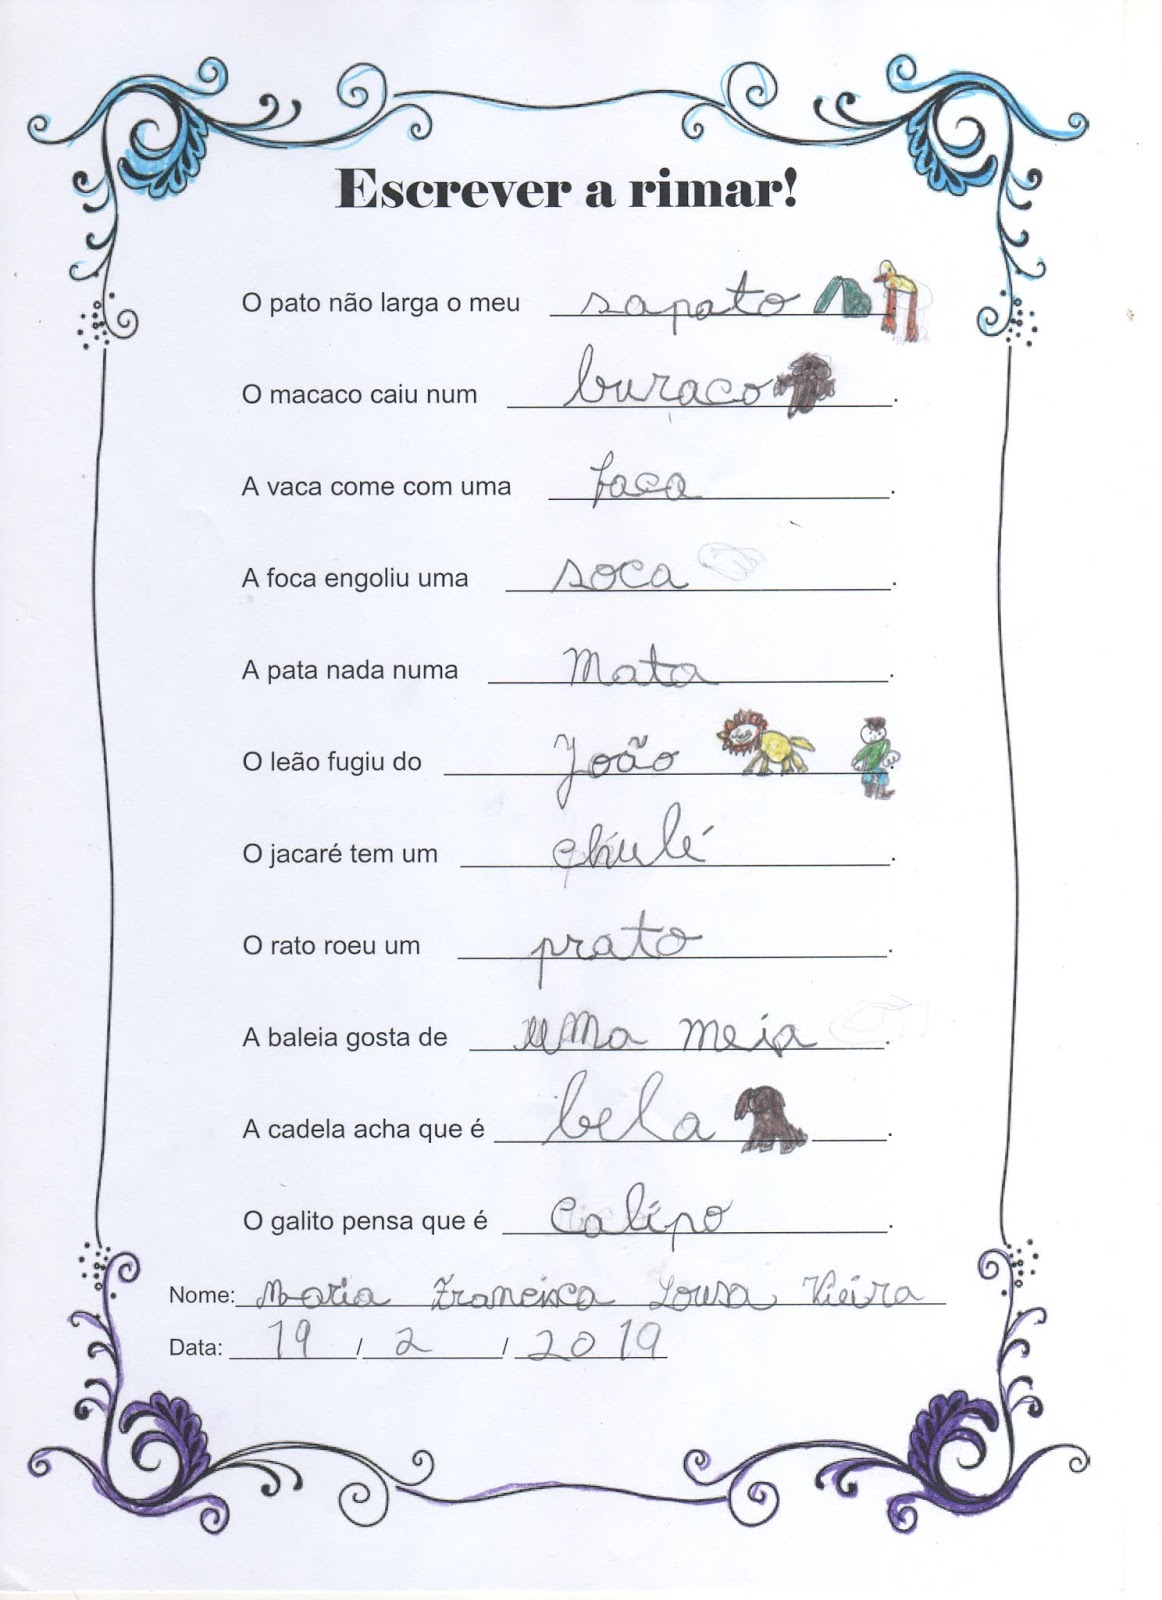 Escrever a rimar!
O pato não larga o meu sapato
O macaco caiu num buraco.
A vaca come com uma faca.
A foca engoliu uma soca.
A pata nada numa Mata.
O leão fugiu do João
O jacaré tem um chulé.
O rato roeu um prato.
A baleia gosta de uma meia.
A cadela acha que é bela.
O galito pensa que é calipo.
Nome: Maria Francisca Lousa Vieira
Data: 19 / 2 / 2019